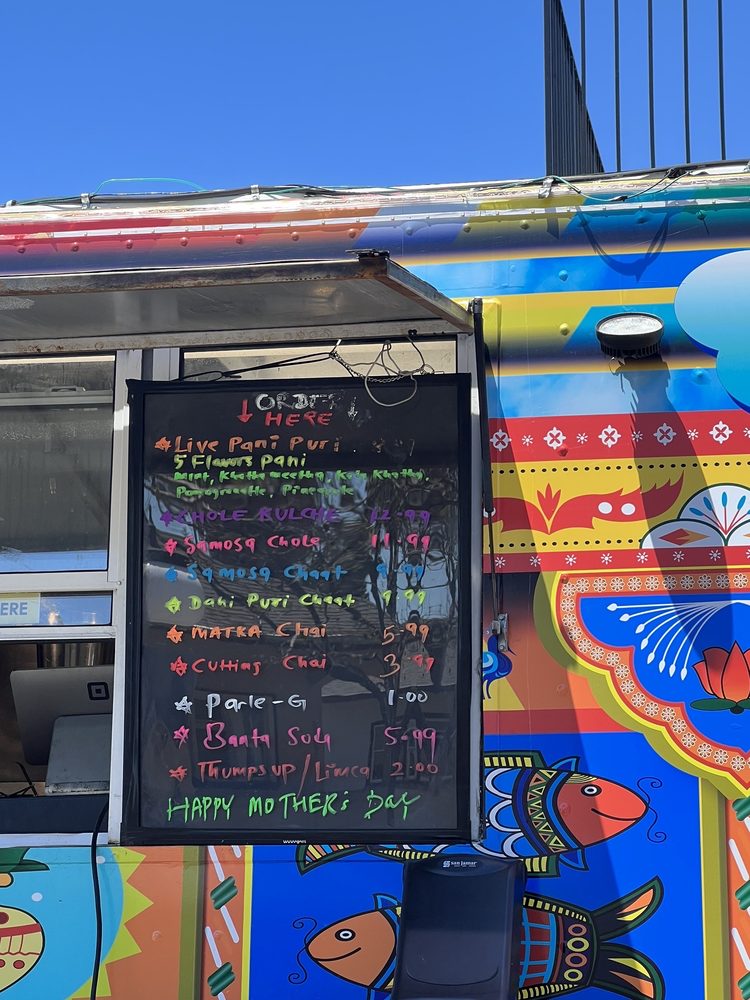 ORDER
HERE
Live Pani Puri
5 Flavors Pani
Mint, Khatta meetha,
Pomegranate, Pineapple
CHOLE KULCHE 12.99
Samosa Chole 11.99
Samosa Chaat 9.99
Dahi Puri Chaat 9.99
MATKA Chai 5.99
Cutting Chai 3.99
Parle-G 1.00
Banta Soda 5.99
Thumps up / Limca 2.00
HAPPY MOTHER's Day
ERE
san jamar